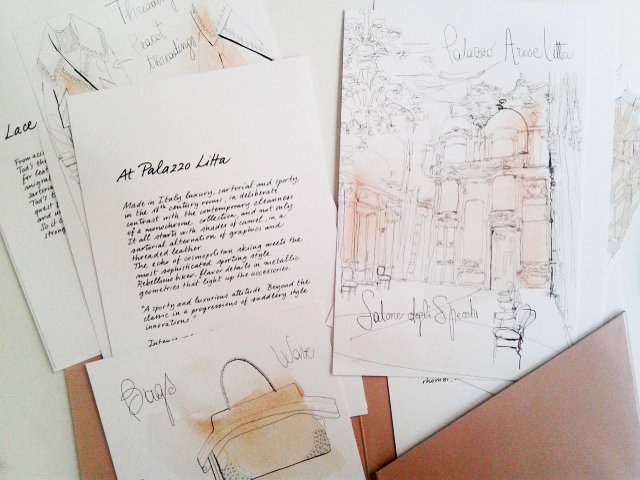 Threading
Precut
threadings
Lace
From
Tod's
for lea
sartoria
Tod's
and
strong
At Palazzo Litta
Made in Italy luxury, sartorial and sporty,
in the 18th century rooms, in deliberate
contrast with the contemporary cleanness
of a monochrome collection, and not only.
It all starts with shades of camel, in a
sartorial alternation of graphics and
threaded leather.
The echo of cosmopolitan skiing meets the
most sophisticated sporting style.
Rebellious biker flavor details in metallic
geometries that light up the accessories.
"A sporty and luxurious attitude. Beyond the
classic in a progression of saddlery style
innovations"
Palazzo Arese Litta
Salone degli Specchi
rhombi,
Bags
Wave